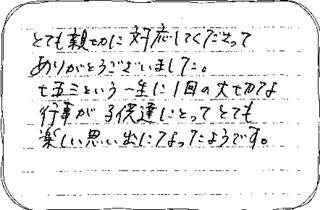 とても親切に対応してくださって
ありがとうございました。
七五三という一生に1回の大切な
行事が子供達にとってとても
楽しい思い出になったようです。